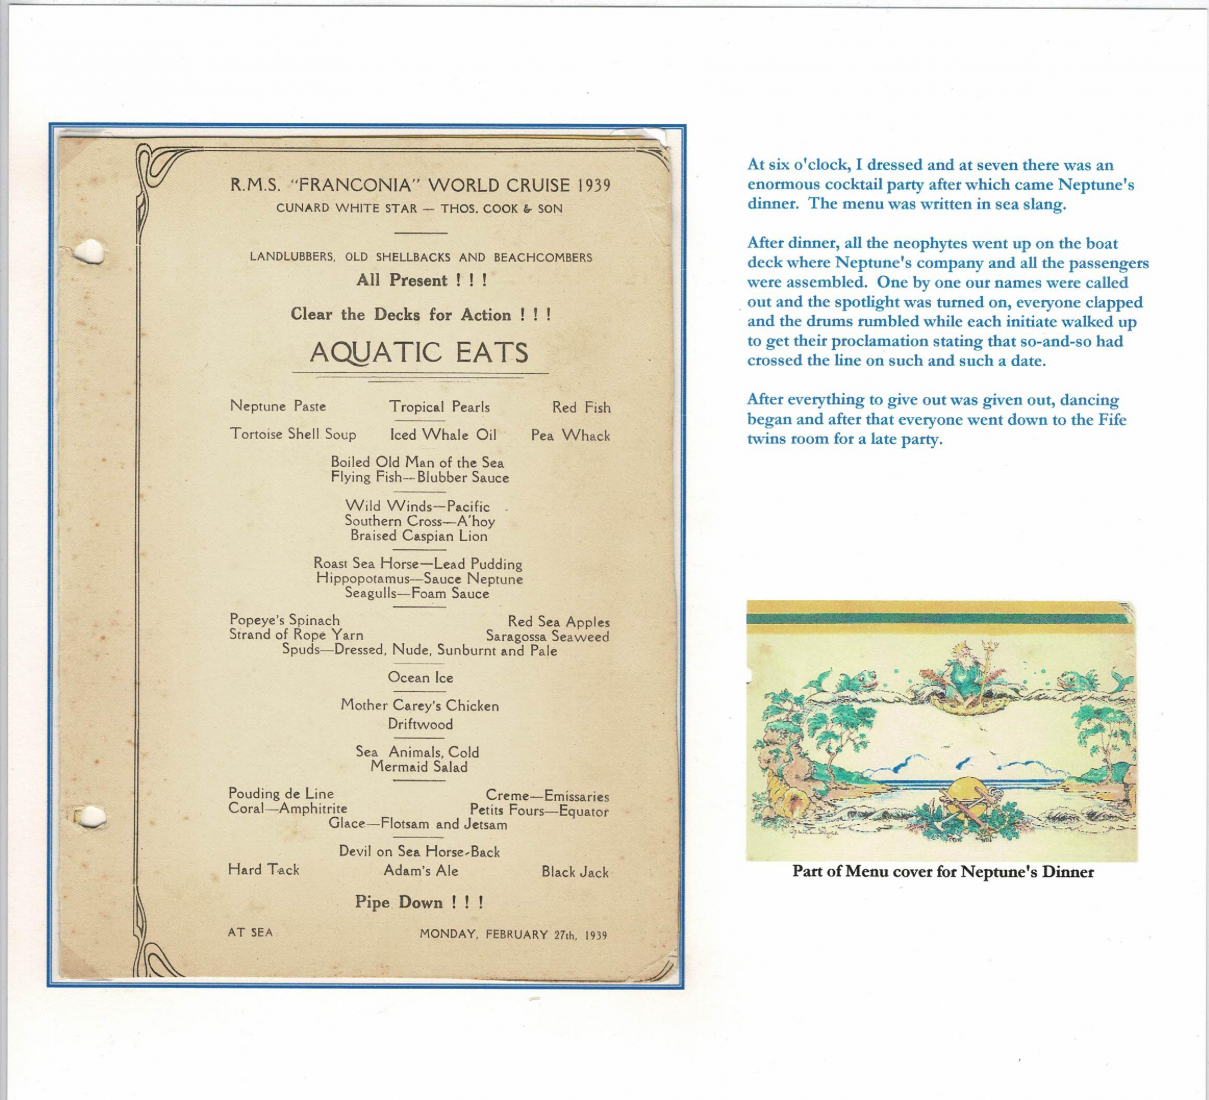 R.M.S. "FRANCONIA" WORLD CRUISE 1939
CUNARD WHITE STAR — THOS. COOK & SON
LANDLUBBERS, OLD SHELLBACKS AND BEACHCOMBERS
All Present ! ! !
Clear the Decks for Action ! ! !
AQUATIC EATS
Neptune Paste Tropical Pearls Red Fish
Tortoise Shell Soup Iced Whale Oil Pea Whack
Boiled Old Man of the Sea
Flying Fish—Blubber Sauce
Wild Winds—Pacific
Southern Cross—A'hoy
Braised Caspian Lion
Roast Sea Horse—Lead Pudding
Hippopotamus—Sauce Neptune
Seagulls—Foam Sauce
Popeye's Spinach Red Sea Apples
Strand of Rope Yarn Saragossa Seaweed
Spuds—Dressed, Nude, Sunburnt and Pale
Ocean Ice
Mother Carey's Chicken
Driftwood
Sea Animals, Cold
Mermaid Salad
Pouding de Line Creme—Emissaries
Coral—Amphitrite Petits Fours—Equator
Glace—Flotsam and Jetsam
Devil on Sea Horse-Back
Hard Tack Adam's Ale Black Jack
Pipe Down ! ! !
AT SEA MONDAY, FEBRUARY 27th, 1939
At six o'clock, I dressed and at seven there was an
enormous cocktail party after which came Neptune's
dinner. The menu was written in sea slang.
After dinner, all the neophytes went up on the boat
deck where Neptune's company and all the passengers
were assembled. One by one our names were called
out and the spotlight was turned on, everyone clapped
and the drums rumbled while each initiate walked up
to get their proclamation stating that so-and-so had
crossed the line on such and such a date.
After everything to give out was given out, dancing
began and after that everyone went down to the Fife
twins room for a late party.
Part of Menu cover for Neptune's Dinner